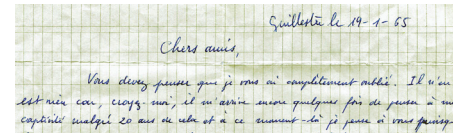 Guillestre le 19-1-65
Chers amis,
Vous devez penser que je vous ai complètement oublié. Il n'en
est rien car, croyez-moi, il m'arrive encore quelques fois de penser à ma
captivité malgré 20 ans de cela et à ce moment-là je pense à vous puisqu